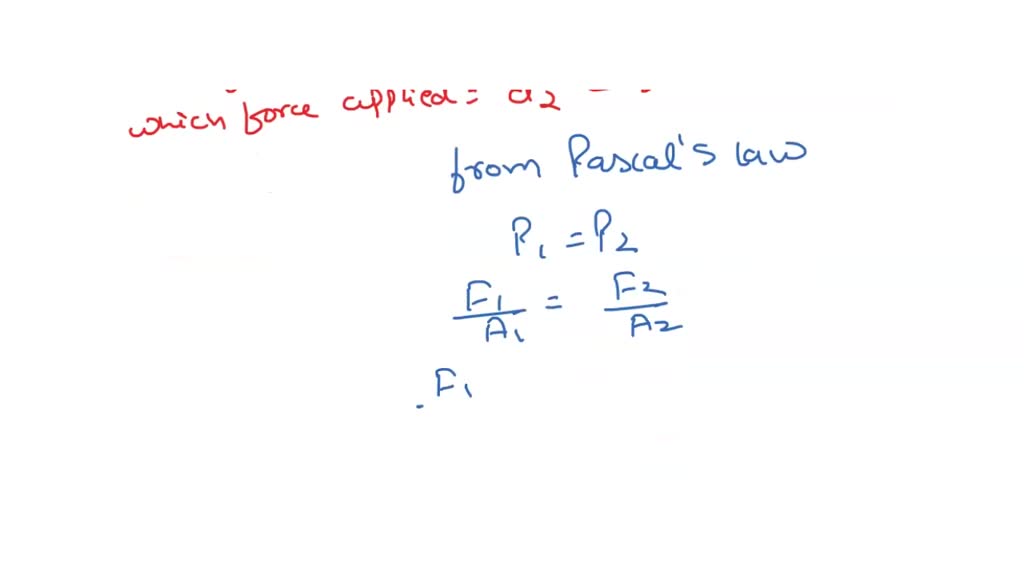 which force applied = d2 =
from Pascal's law
P1 = P2
F1/A1 = F2/A2
F1